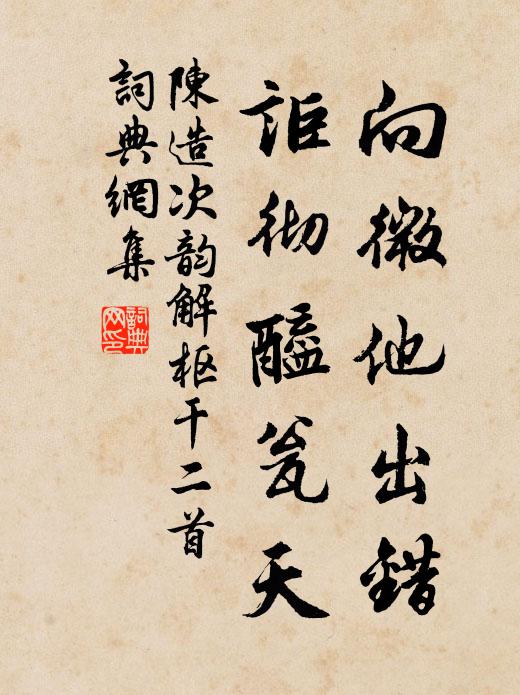 向微他出錯
詎彻醯瓮天
陳造次韵解枢干二首
詞典網集
詞典
网印